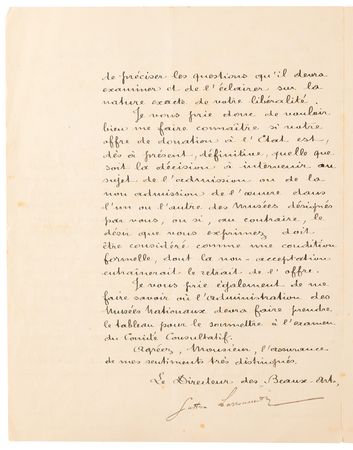 de préciser les questions qu'il devra
examiner et de l'éclairer sur la
nature exacte de votre libéralité.
Je vous prie donc de vouloir
bien me faire connaître si votre
offre de donation à l'Etat est,
dès à présent, définitive, quelle que
soit la décision à intervenir au
sujet de l'admission ou de la
non admission de l'œuvre dans
l'un ou l'autre des Musées désignés
par vous, ou si, au contraire, le
désir que vous exprimez doit
être considéré comme une condition
formelle, dont la non-acceptation
entraînerait le retrait de l'offre.
Je vous prie également de me
faire savoir où l'administration des
Musées Nationaux devra faire prendre
le tableau pour le soumettre à l'examen
du Comité Consultatif.
Agréez, Monsieur, l'assurance
de mes sentiments très distingués.
Le Directeur des Beaux-Arts,